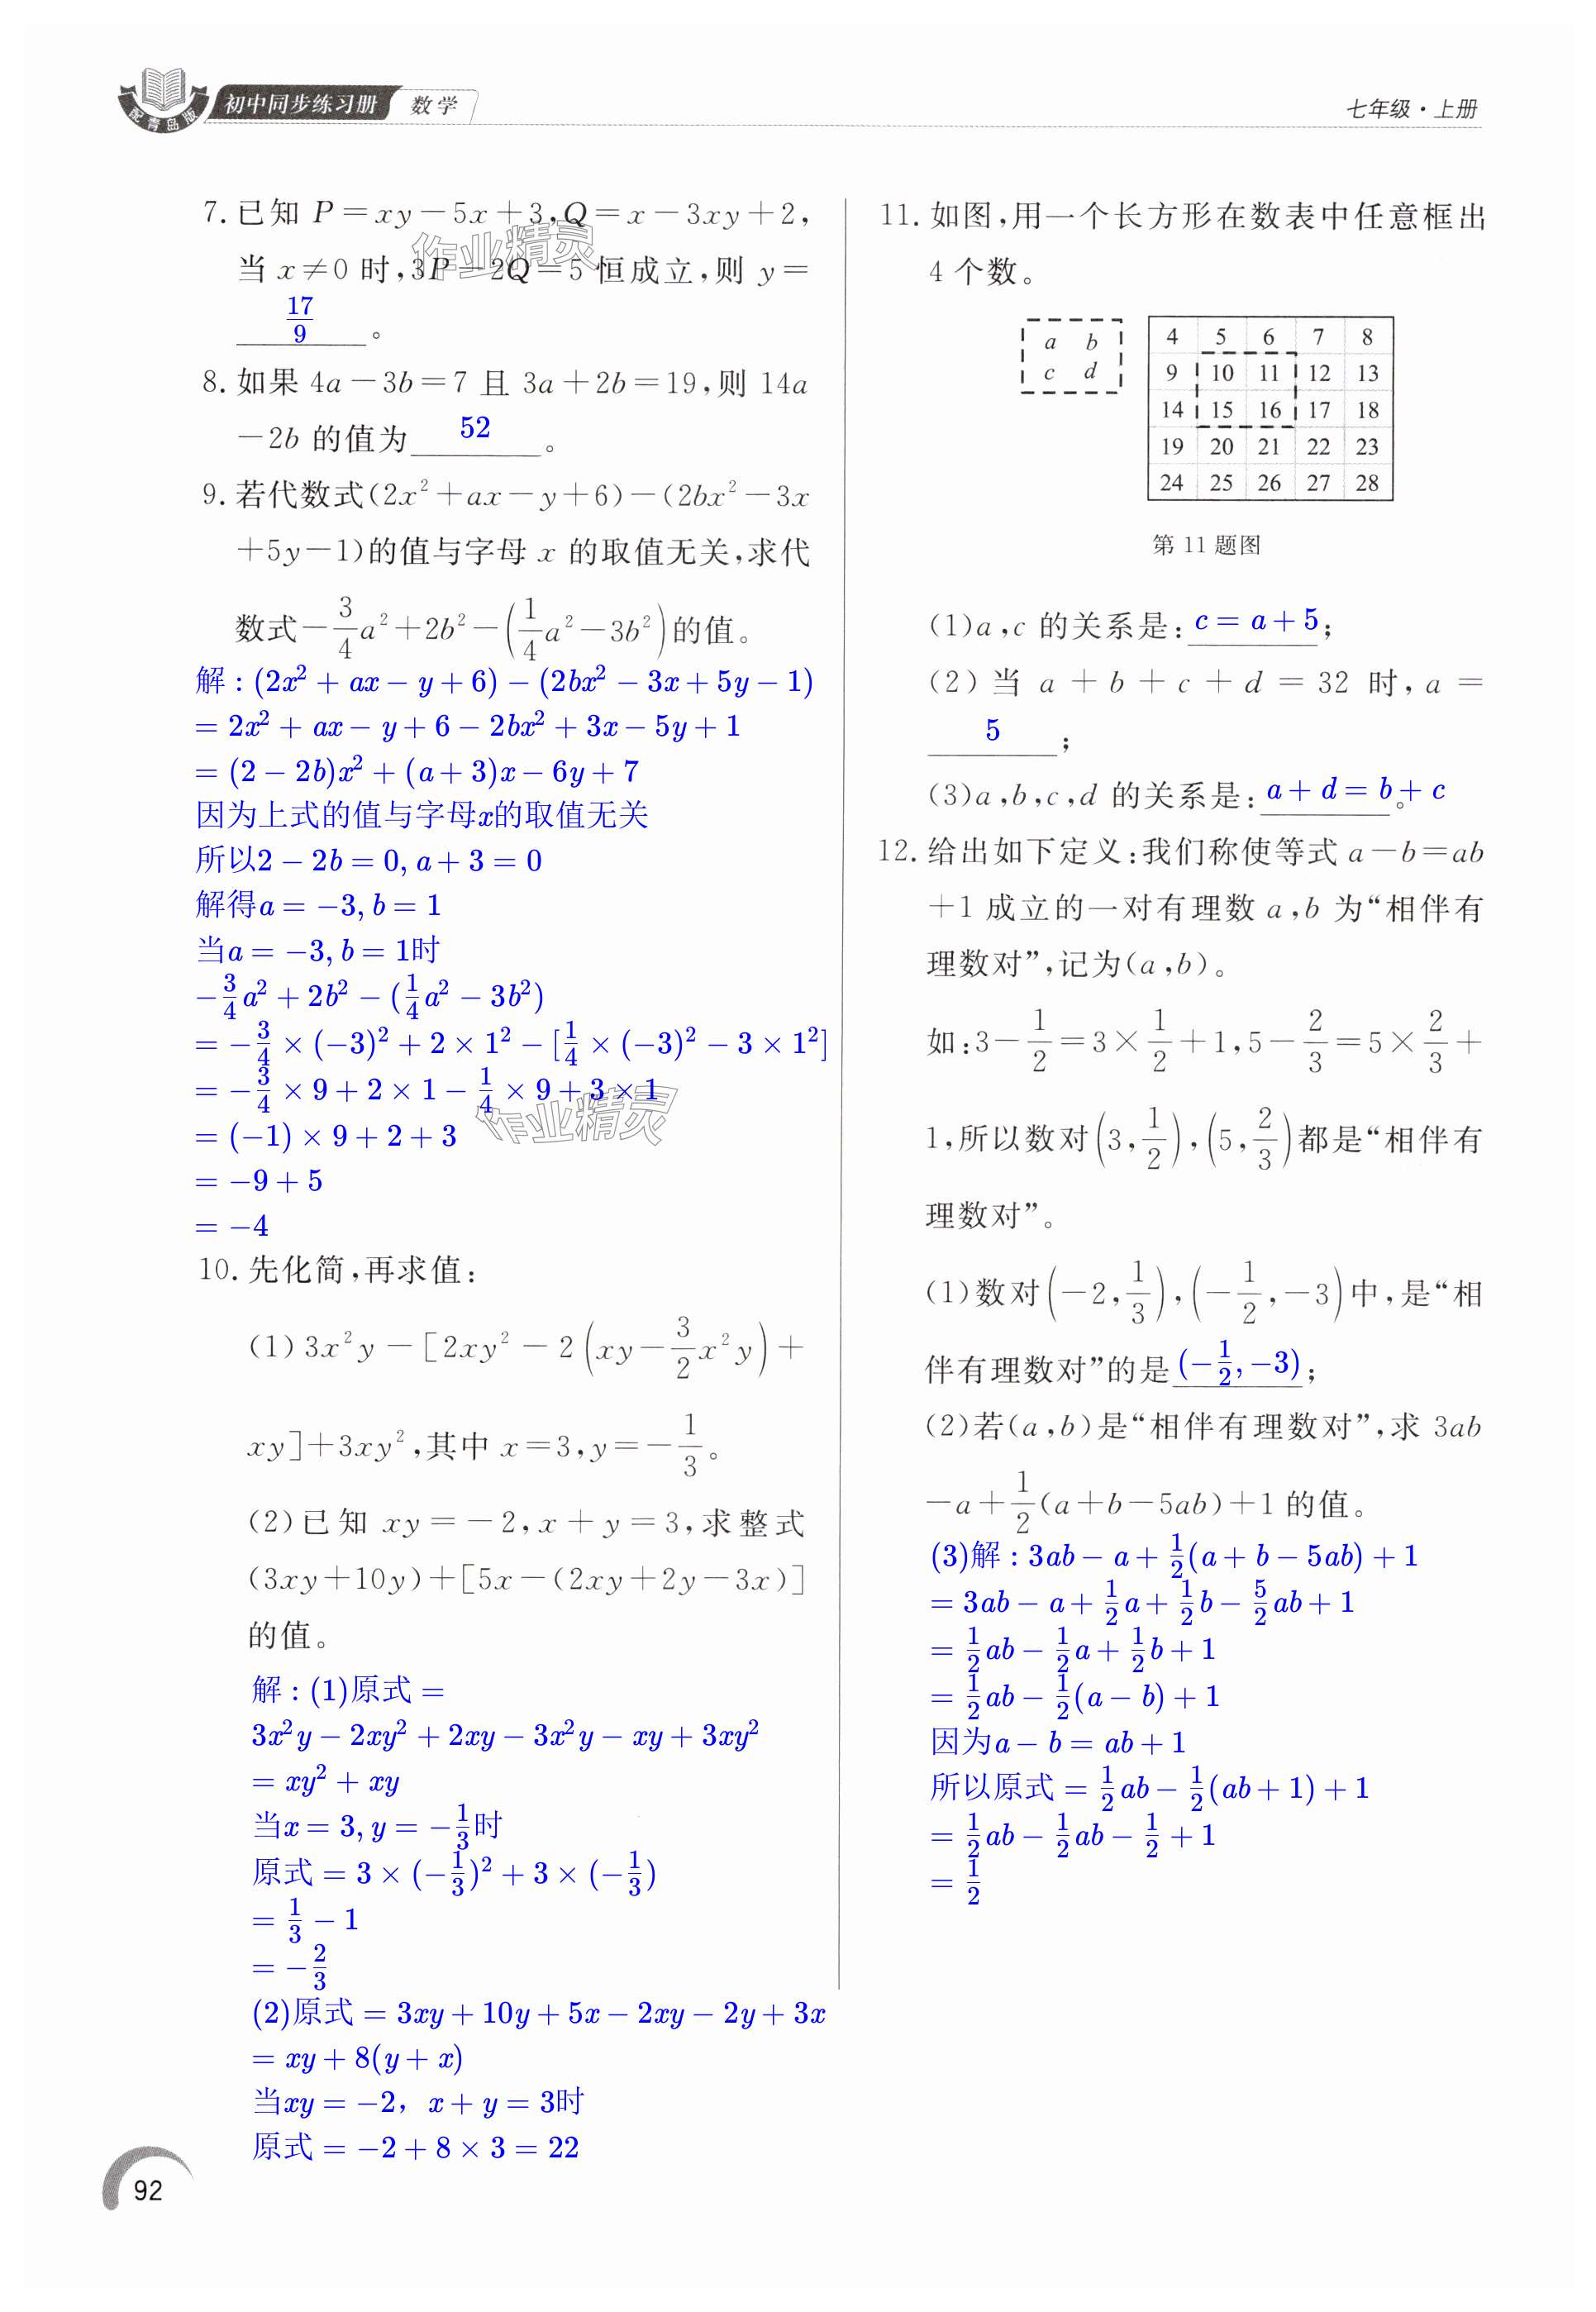 配青岛版
初中同步练习册 数学
七年级·上册
7. 已知 P=xy-5x+3,Q=x-3xy+2,
当 x≠0 时,3P-2Q=5 恒成立,则 y=
17/9 。
8. 如果 4a-3b=7 且 3a+2b=19,则 14a
-2b 的值为 52 。
9. 若代数式(2x²+ax-y+6)-(2bx²-3x
+5y-1)的值与字母 x 的取值无关,求代
数式-3/4a²+2b²-(1/4a²-3b²)的值。
解:(2x²+ax-y+6)-(2bx²-3x+5y-1)
=2x²+ax-y+6-2bx²+3x-5y+1
=(2-2b)x²+(a+3)x-6y+7
因为上式的值与字母x的取值无关
所以2-2b=0,a+3=0
解得a=-3,b=1
当a=-3,b=1时
-3/4a²+2b²-(1/4a²-3b²)
=-3/4×(-3)²+2×1²-[1/4×(-3)²-3×1²]
=-3/4×9+2×1-1/4×9+3×1
=(-1)×9+2+3
=-9+5
=-4
10. 先化简,再求值:
(1)3x²y-[2xy²-2(xy-3/2x²y)+
xy]+3xy²,其中 x=3,y=-1/3。
(2)已知 xy=-2,x+y=3,求整式
(3xy+10y)+[5x-(2xy+2y-3x)]
的值。
解:(1)原式=
3x²y-2xy²+2xy-3x²y-xy+3xy²
=xy²+xy
当x=3,y=-1/3时
原式=3×(-1/3)²+3×(-1/3)
=1/3-1
=-2/3
(2)原式=3xy+10y+5x-2xy-2y+3x
=xy+8(y+x)
当xy=-2，x+y=3时
原式=-2+8×3=22
92
11. 如图,用一个长方形在数表中任意框出
4 个数。
a b
c d
4 5 6 7 8
9 10 11 12 13
14 15 16 17 18
19 20 21 22 23
24 25 26 27 28
第 11 题图
(1)a,c 的关系是: c=a+5 ;
(2)当 a+b+c+d=32 时,a=
5 ;
(3)a,b,c,d 的关系是: a+d=b+c 。
12. 给出如下定义:我们称使等式 a-b=ab
+1 成立的一对有理数 a,b 为“相伴有
理数对”,记为(a,b)。
如:3-1/2=3×1/2+1,5-2/3=5×2/3+
1,所以数对(3,1/2),(5,2/3)都是“相伴有
理数对”。
(1)数对(-2,1/3),(-1/2,-3)中,是“相
伴有理数对”的是 (-1/2,-3) ;
(2)若(a,b)是“相伴有理数对”,求 3ab
-a+1/2(a+b-5ab)+1 的值。
(3)解:3ab-a+1/2(a+b-5ab)+1
=3ab-a+1/2a+1/2b-5/2ab+1
=1/2ab-1/2a+1/2b+1
=1/2ab-1/2(a-b)+1
因为a-b=ab+1
所以原式=1/2ab-1/2(ab+1)+1
=1/2ab-1/2ab-1/2+1
=1/2
作业精灵
作业精灵